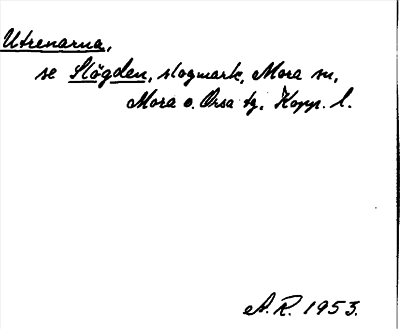 Utrenarna,
se Slögden, slogmark, Mora sn,
Mora o. Orsa tg, Kopp. l.
A.R. 1953.